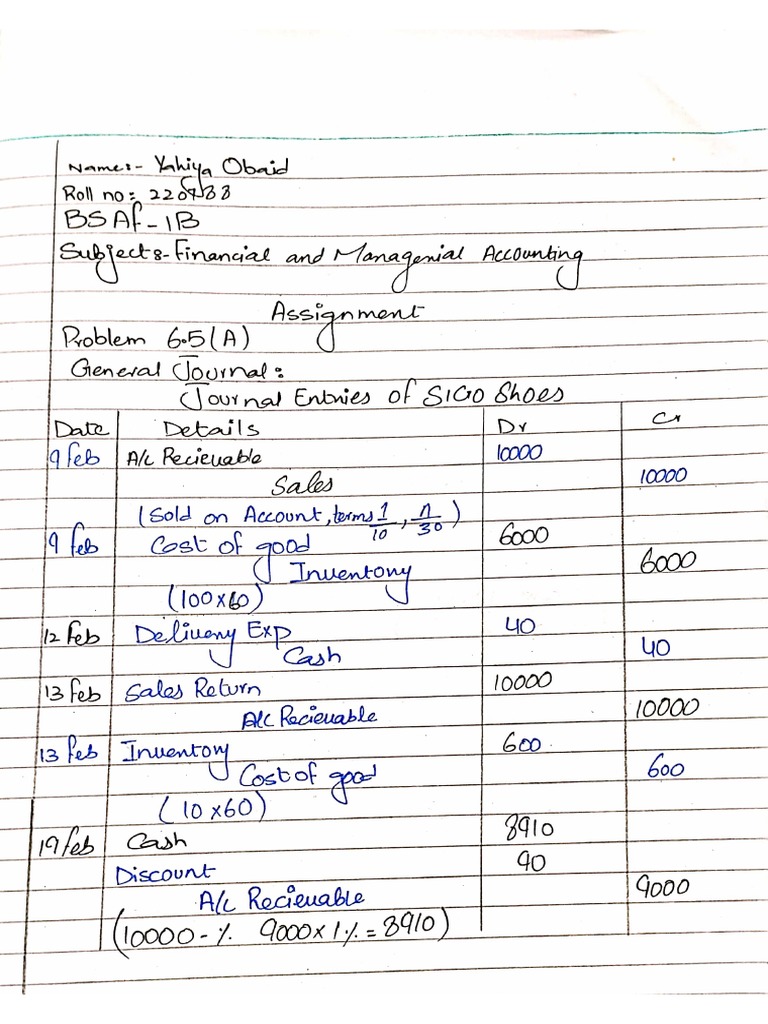 Name:- Yahiya Obaid
Roll no:
BSAf-1B
Subject:- Financial and Managenial Accounting
Assignment
Problem 6.5(A)
General Journal:
Journal Entries of SIGO Shoes
Date Details Dr Cr
9 feb A/C Recievable 10000
Sales 10000
(Sold on Account, terms 1/10, n/30)
9 feb Cost of good 6000
Inventory 6000
(100x60)
12 feb Delivery Exp 40
Cash 40
13 feb Sales Return 10000
A/C Recievable 10000
13 feb Inventory 600
Cost of good 600
(10x60)
19 feb Cash 8910
Discount 90
A/C Recievable 9000
(10000-% 9000x1%=8910)